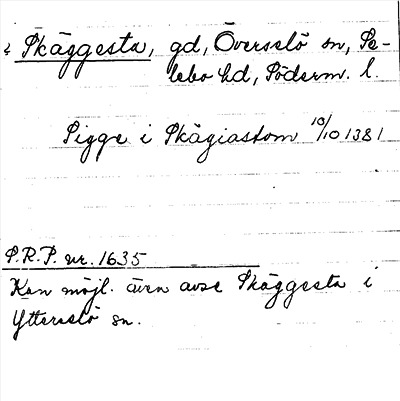 Skäggesta, gd, Överselö sn, Se-
lebo hd, Söderm. l.
Sigge i Skägiastom 10/10 1381
S.R.P. nr. 1635
Kan möjl. även avse Skäggesta i
Ytterselö sn.